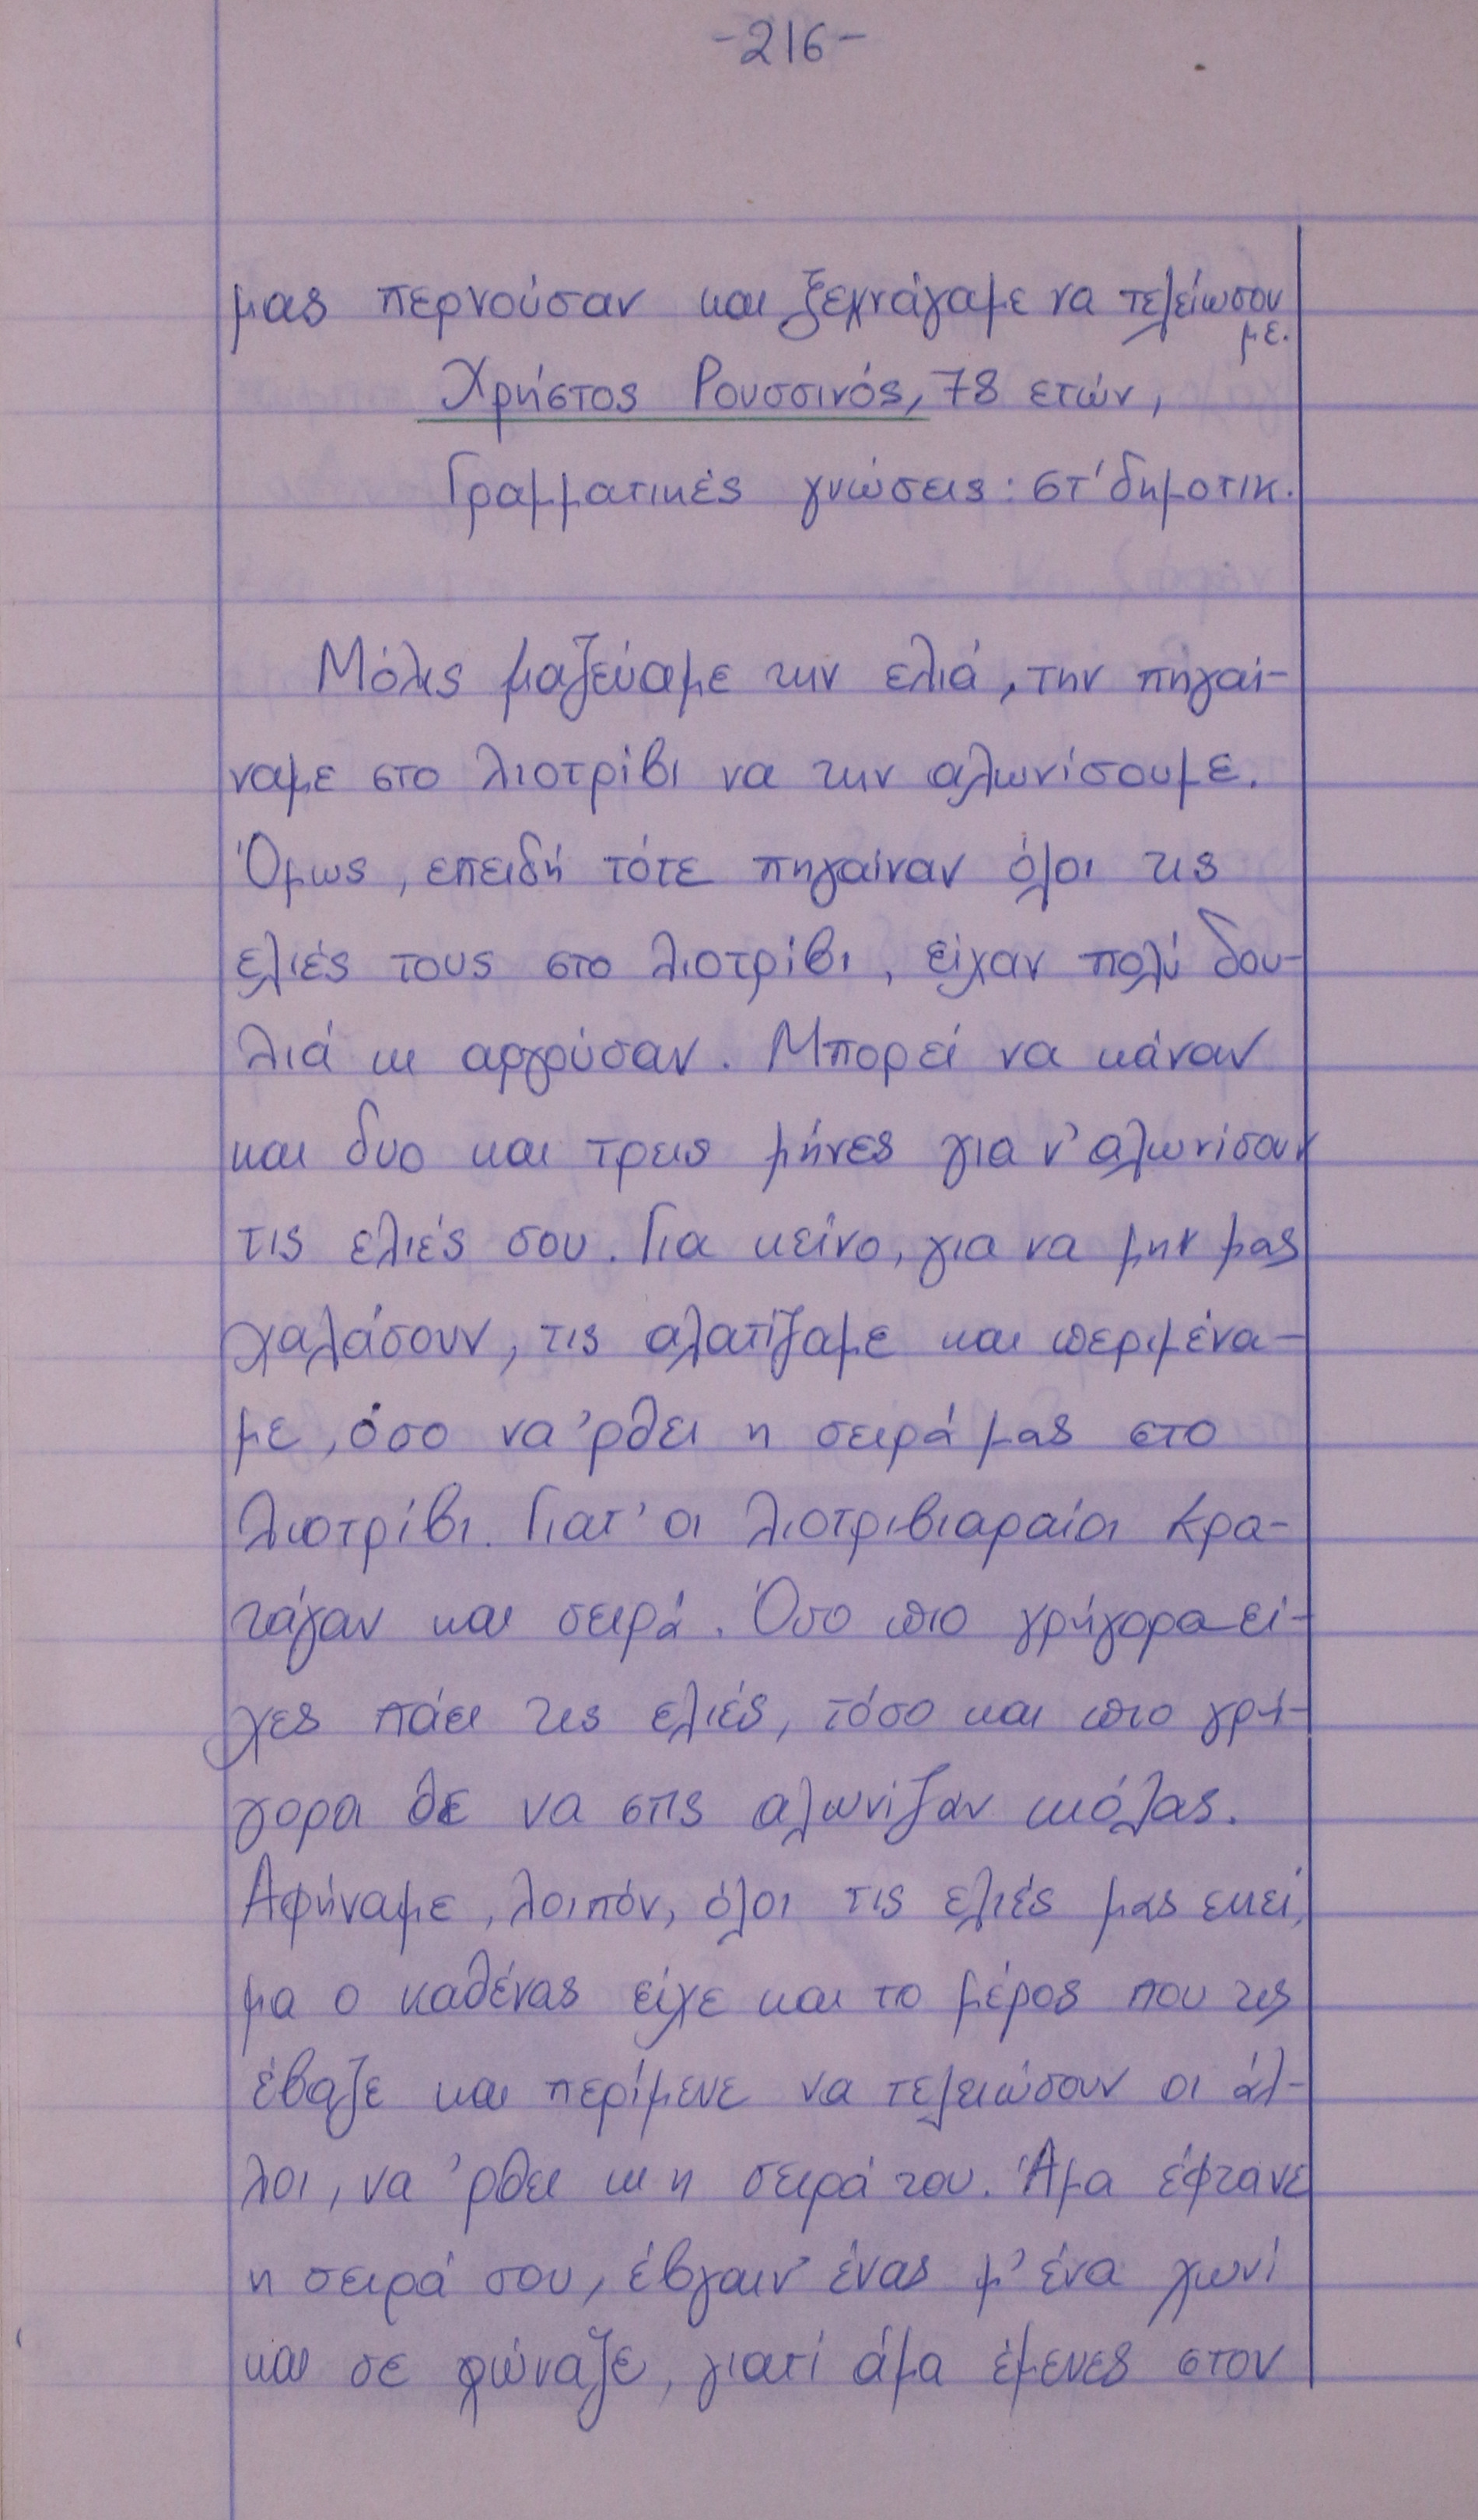 -216-
μας περνούσαν και ξεχνάγαμε να τελείωσου
με.
Χρήστος Ρουσσινός, 78 ετών,
Γραμματικές γνώσεις: στ' δημοτικ.
Μόλις μαζεύαμε την ελιά, την πηγαί-
ναμε στο λιοτρίβι να την αλωνίσουμε.
Όμως, επειδή τότε πηγαίναν όλοι τις
ελιές τους στο λιοτρίβι, είχαν πολύ δου-
λιά κι αργούσαν. Μπορεί να κάναν
και δυο και τρεις μήνες για ν' αλωνίσουν
τις ελιές σου. Για κείνο, για να μην μας
χαλάσουν, τις αλατίζαμε και περιμένα-
με, όσο να 'ρθει η σειρά μας στο
λιοτρίβι. Γιατ' οι λιοτριβιαραίοι κρα-
τάγαν και σειρά. Όσο πιο γρήγορα εί-
χες πάει τις ελιές, τόσο και πιο γρή-
γορα θε να στις αλωνίζαν κιόλας.
Αφήναμε, λοιπόν, όλοι τις ελιές μας εκεί,
μα ο καθένας είχε και το μέρος που τις
έβαζε και περίμενε να τελειώσουν οι άλ-
λοι, να 'ρθει κι η σειρά του. Άμα έφτανε
η σειρά σου, έβγαιν' ένας μ' ένα χωνί
και σε φώναζε, γιατί άμα έμενες στον